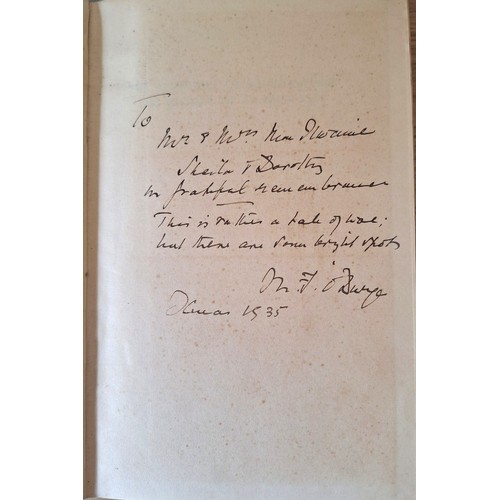 To
Mr & Mrs Mac Ilwaine
Sheila & Dorothy
in grateful remembrance
This is rather a tale of woe;
but there are some bright spots
M. F.
Xmas 1935